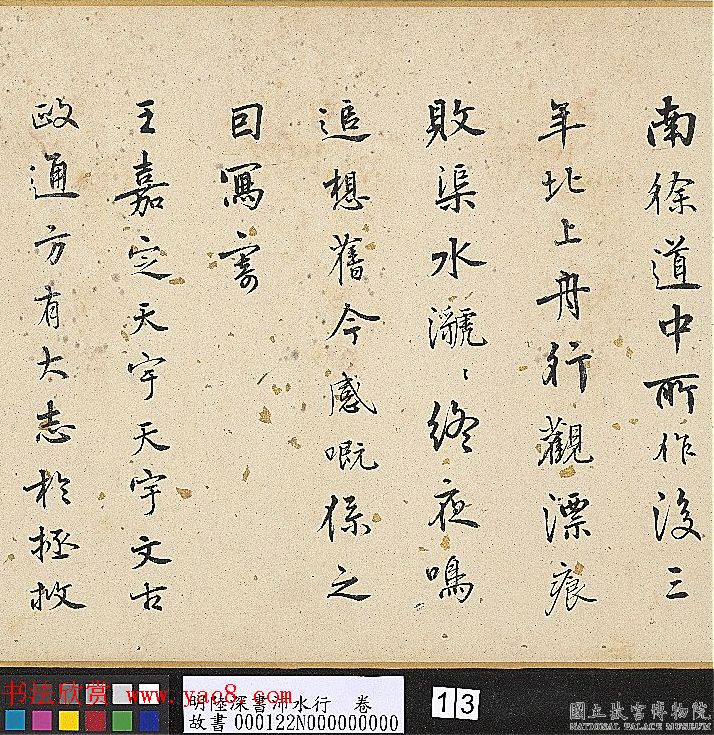 南徐道中所作後三
年北上舟行觀漂痕
敗渠水灑〻終夜鳴
追想舊今感嘅係之
因寫寄
王嘉定天宇天宇文古
政通方有大志於拯救
书法欣赏 www.yac8.com
明陸深書沛水行 卷
故書 000122N000000000
13
國立故宮博物院
NATIONAL PALACE MUSEUM